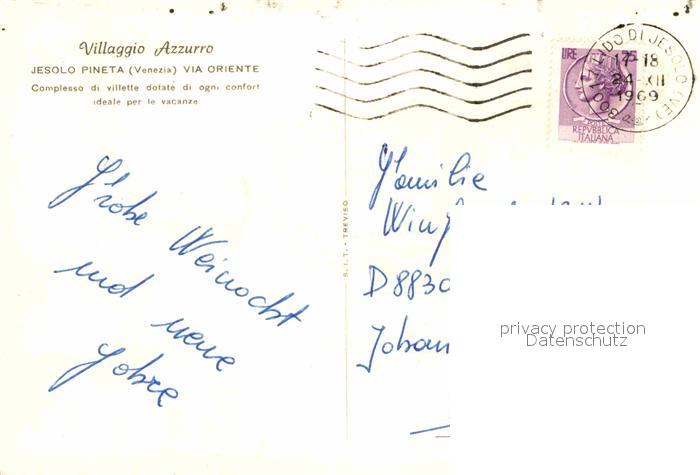 Villaggio Azzurro
JESOLO PINETA (Venezia) VIA ORIENTE
Complesso di villette dotate di ogni confort
ideale per le vacanze
LIRE 75
REPVBBLICA
ITALIANA
LIDO DI JESOLO (VE)
17-18
24 XII
1969
Frohe Weinacht
und neue
Jahre
S.I.T. - TREVISO
Familie
D 8830
privacy protection
Datenschutz